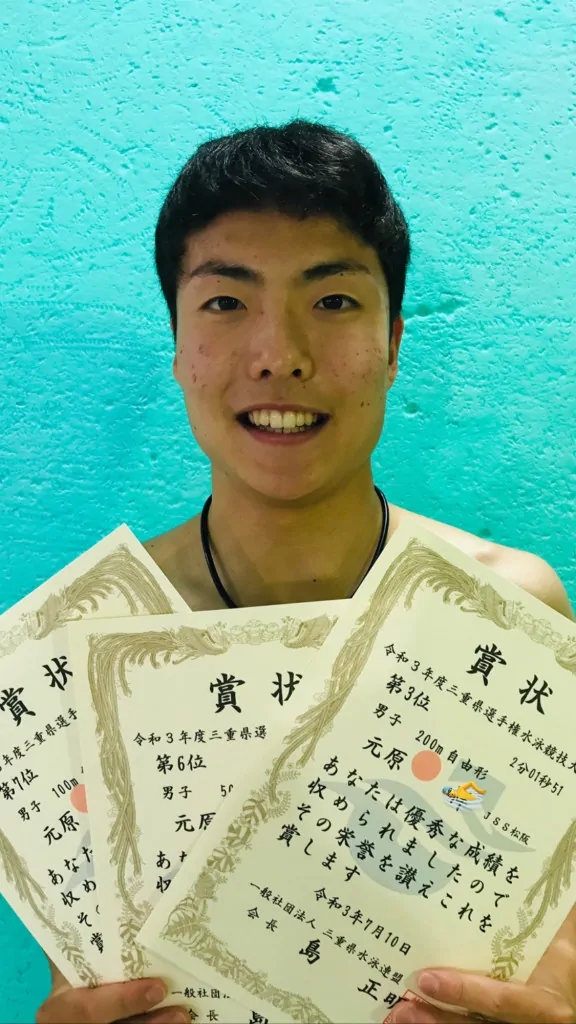 賞状
令和3年度三重県選手
第7位
男子 100m
元原
あなた
収め
その
賞
賞状
令和3年度三重県選
第6位
男子
元原
あな
収
一般社団法
賞状
令和3年度三重県選手権水泳競技大
第3位
男子 200m 自由形 2分01秒51
元原 JSS松阪
あなたは優秀な成績を
収められましたので
その栄誉を讃えこれを
賞します
令和3年7月10日
一般社団法人 三重県水泳連盟
会長 島 正